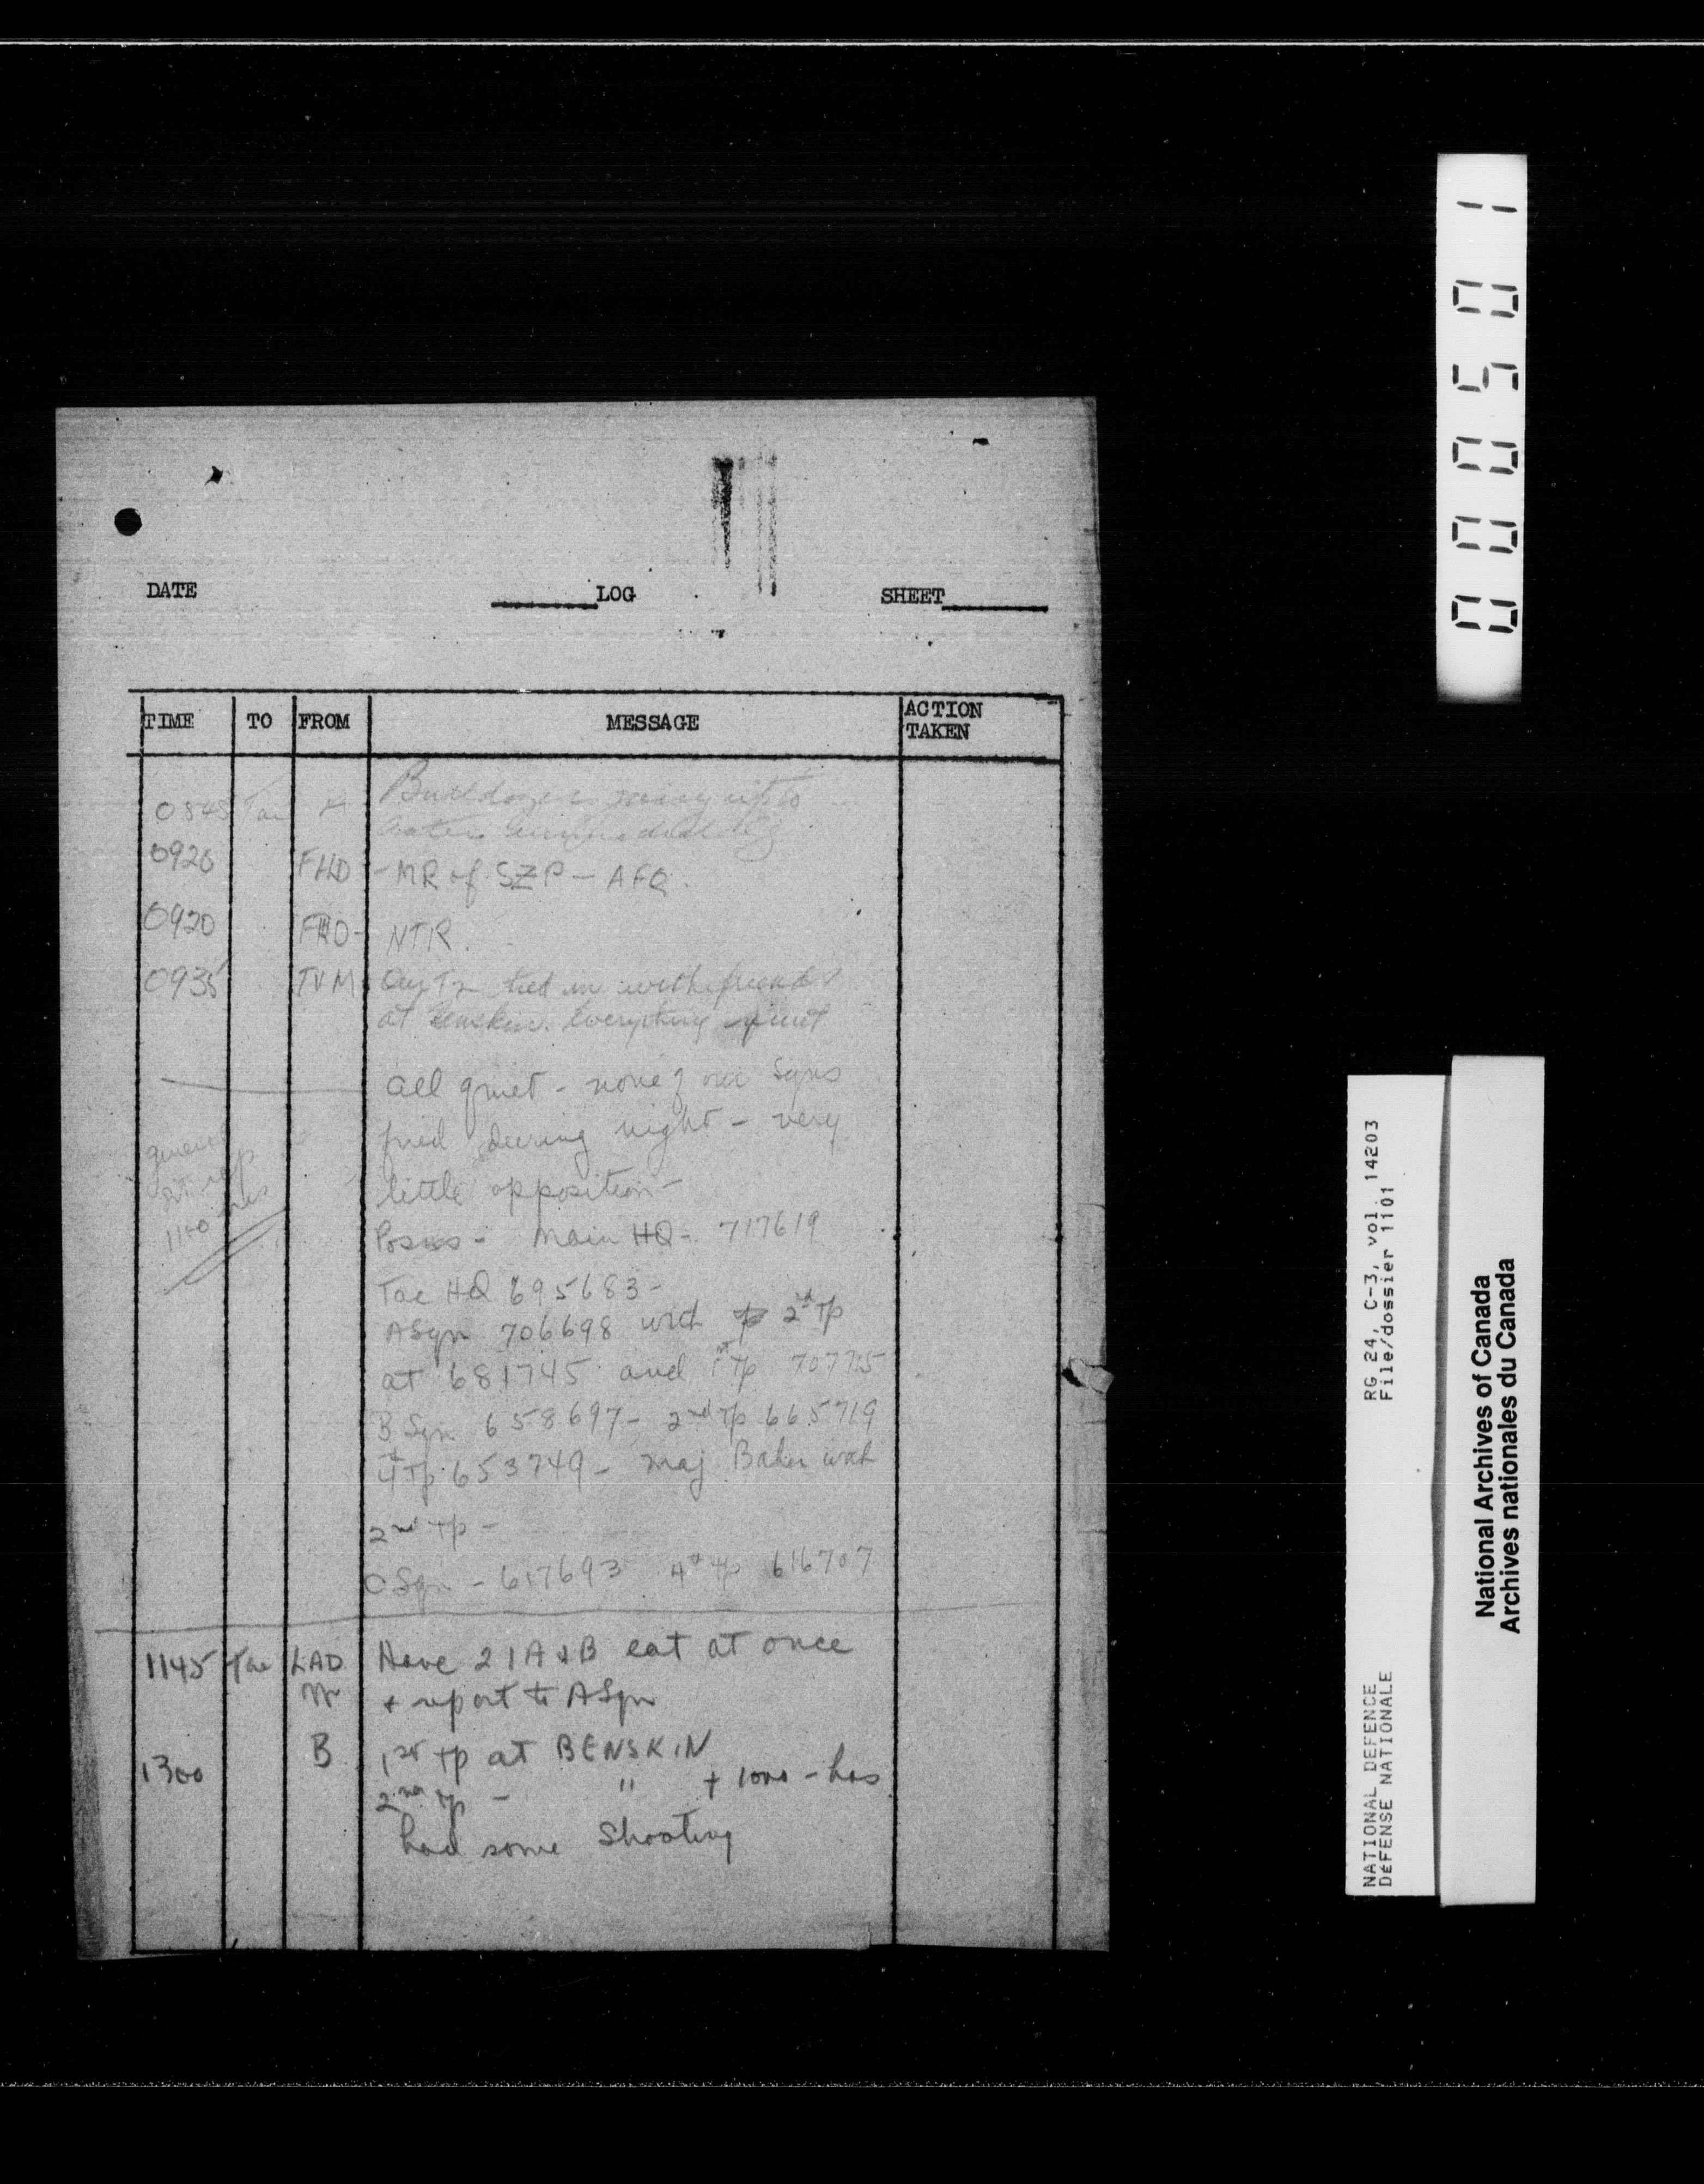 DATE LOG SHEET
TIME TO FROM MESSAGE ACTION TAKEN
0845 Tac A Bulldozer going up to
crater immediately
0920 FHD - MR of SZP - AFQ.
0920 FHD - NTR.
0935 TVM Our Tp tied in with friends
at Benskin. Everything quiet
All quiet - none of our Sqns
fired during night - very
little opposition -
general
sit rep
1100 hrs
Posns - Main HQ - 717619
Tac HQ 695683 -
A Sqn 706698 with 2nd Tp
at 681745 and 1st Tp 707715
B Sqn 658697 - 2nd Tp 665719
4th Tp 653749 - Maj Baker with
2nd Tp -
C Sqn - 617693 4th Tp 616707
1145 Tac LAD Have 21A & B eat at once
& report to A Sqn
1300 B 1st Tp at BENSKIN
2nd Tp - " + 1000 - has
had some shooting
000501
RG 24, C-3, vol. 14203
File/dossier 1101
NATIONAL DEFENCE
DÉFENSE NATIONALE
National Archives of Canada
Archives nationales du Canada